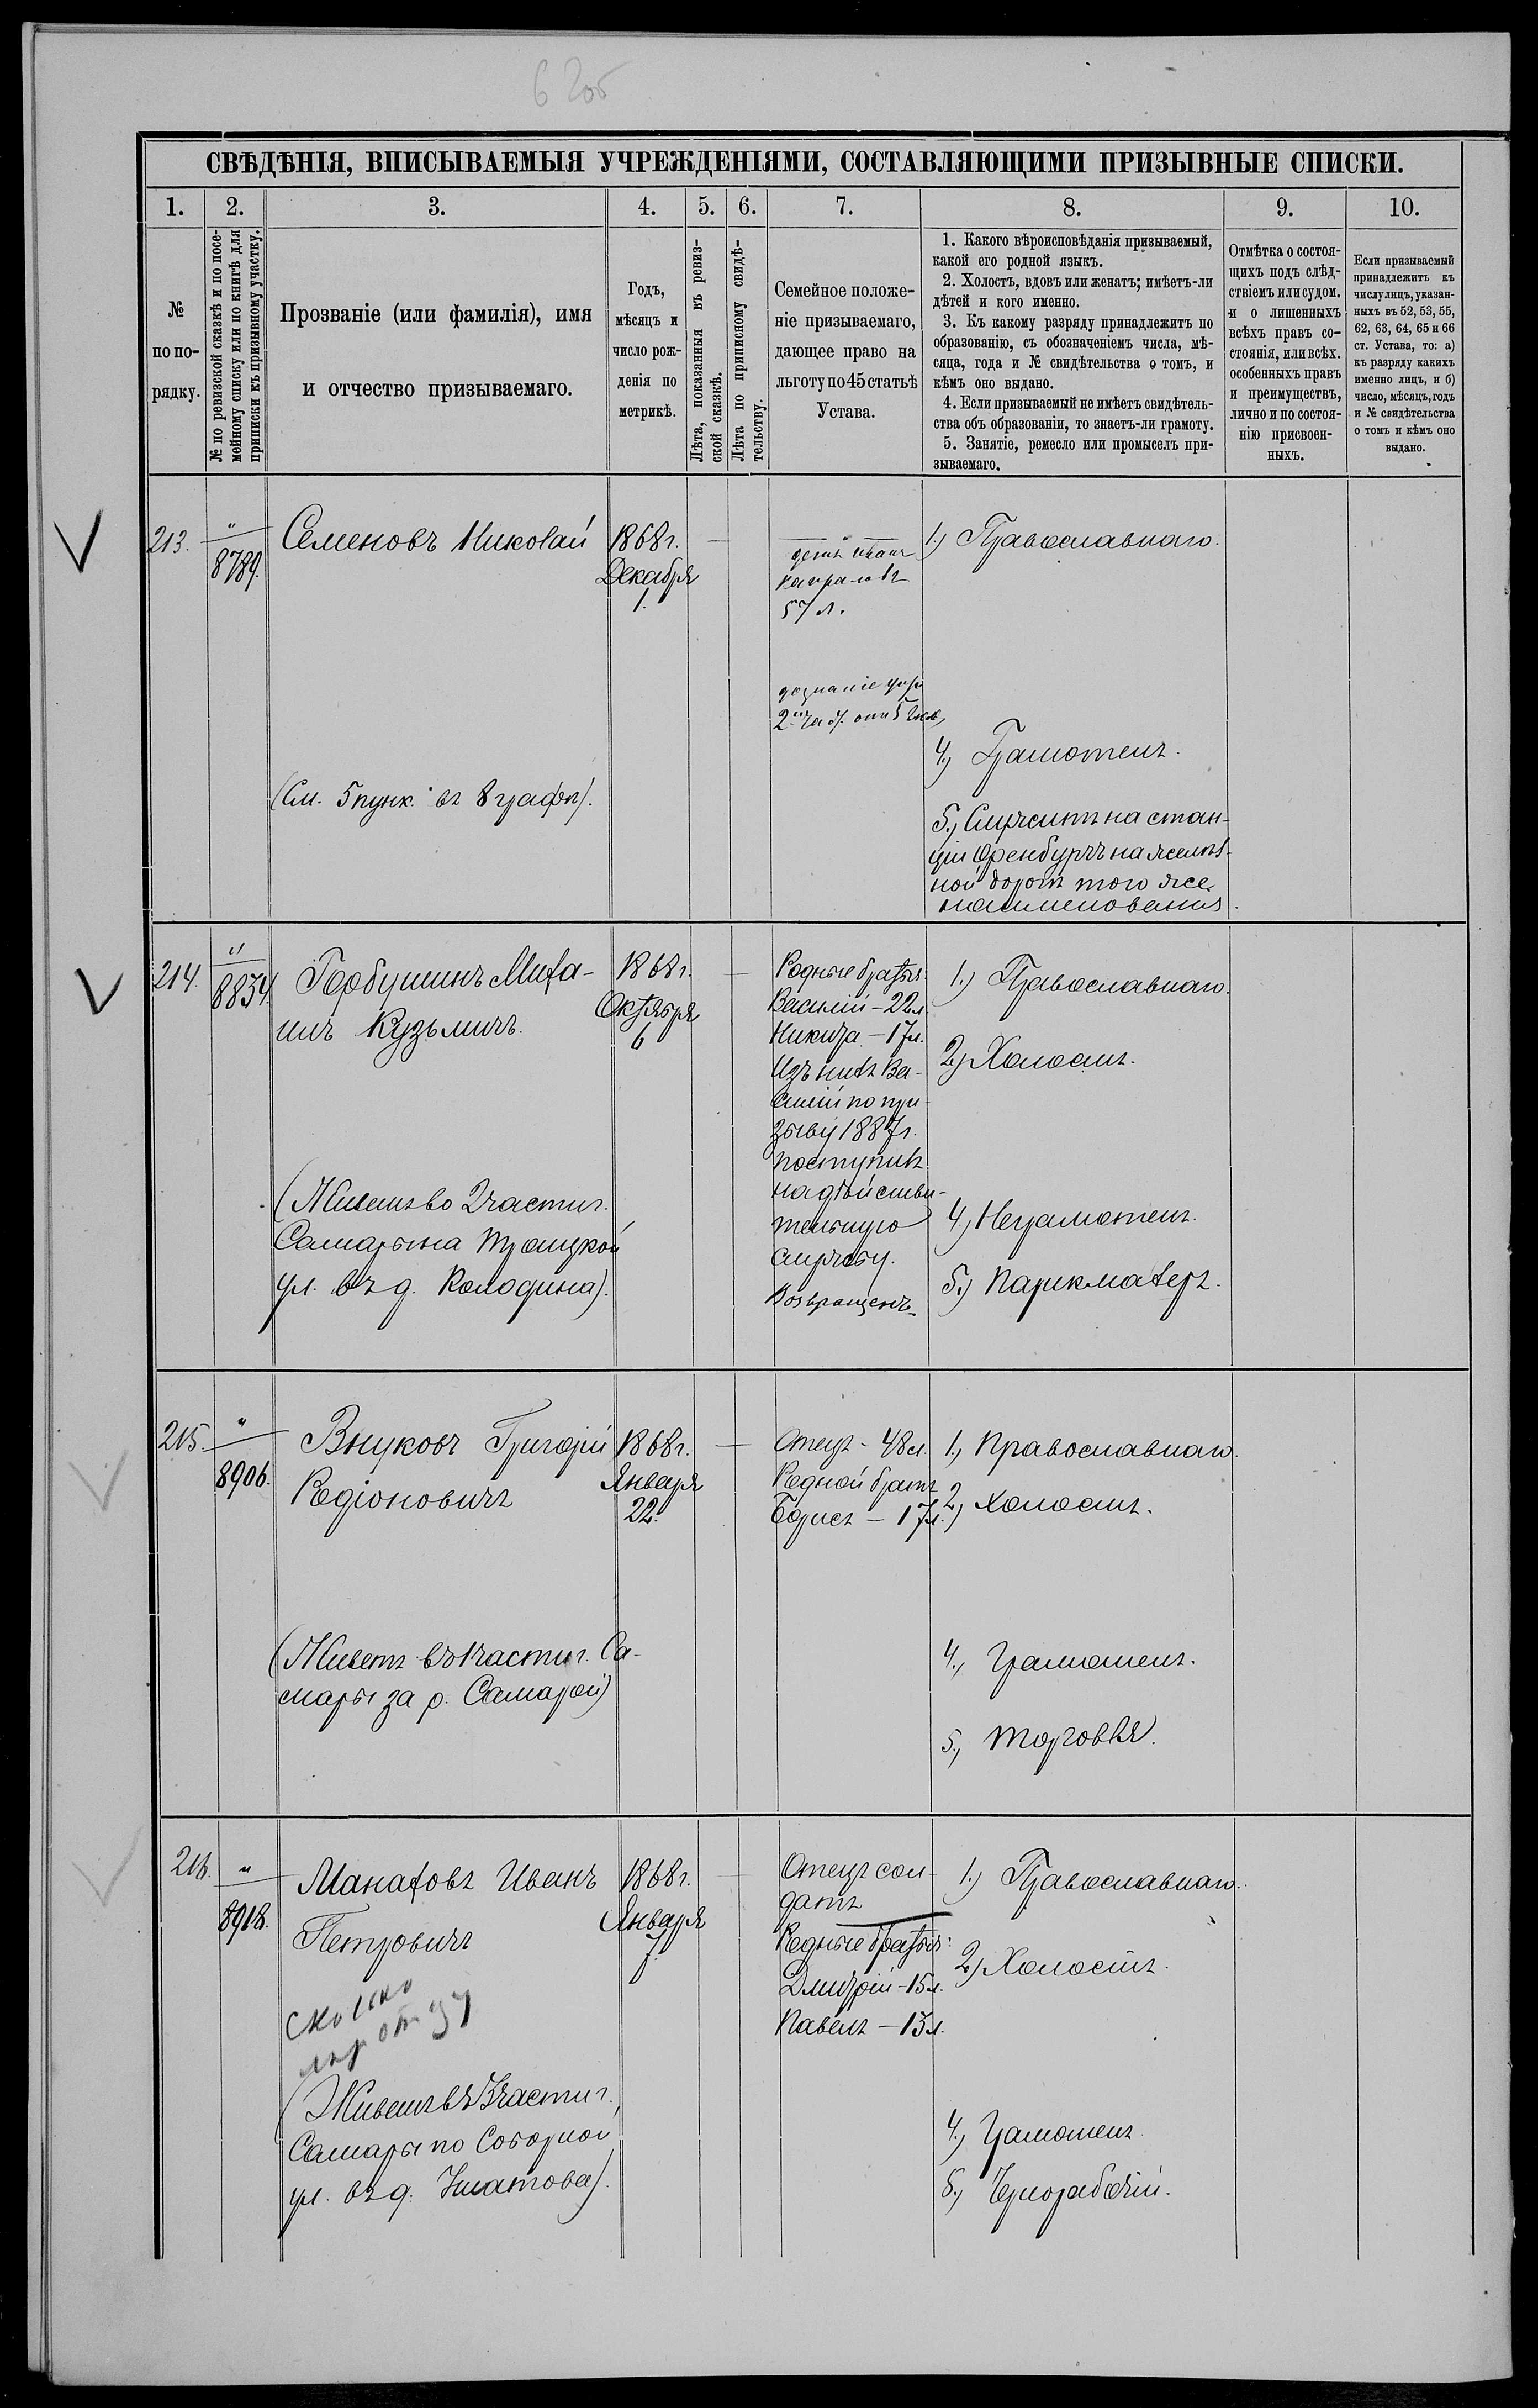 6 2об
СВѢДѢНІЯ, ВПИСЫВАЕМЫЯ УЧРЕЖДЕНІЯМИ, СОСТАВЛЯЮЩИМИ ПРИЗЫВНЫЕ СПИСКИ.
1. 2. 3. 4. 5. 6. 7. 8. 9. 10.
№
по по-
рядку.
№ по ревизской сказкѣ и по посе-
мейному списку или по книгѣ для
приписки къ призывному участку.
Прозваніе (или фамилія), имя
и отчество призываемаго.
Годъ,
мѣсяцъ и
число рож-
денія по
метрикѣ.
Лѣта, показанныя въ ревиз-
ской сказкѣ.
Лѣта по приписному свидѣ-
тельству.
Семейное положе-
ніе призываемаго,
дающее право на
льготу по 45 статьѣ
Устава.
1. Какого вѣроисповѣданія призываемый,
какой его родной языкъ.
2. Холостъ, вдовъ или женатъ; имѣетъ-ли
дѣтей и кого именно.
3. Къ какому разряду принадлежитъ по
образованію, съ обозначеніемъ числа, мѣ-
сяца, года и № свидѣтельства о томъ, и
кѣмъ оно выдано.
4. Если призываемый не имѣетъ свидѣтель-
ства объ образованіи, то знаетъ-ли грамоту.
5. Занятіе, ремесло или промыселъ при-
зываемаго.
Отмѣтка о состоя-
щихъ подъ слѣд-
ствіемъ или судом.
и о лишенныхъ
всѣхъ правъ со-
стоянія, или всѣх.
особенныхъ правъ
и преимуществъ,
лично и по состоя-
нію присвоен-
ныхъ.
Если призываемый
принадлежитъ къ
числу лицъ, указан-
ныхъ въ 52, 53, 55,
62, 63, 64, 65 и 66
ст. Устава, то: а)
къ разряду какихъ
именно лицъ, и б)
число, мѣсяцъ, годъ
и № свидѣтельства
о томъ и кѣмъ оно
выдано.
213.
"
8789.
Семеновъ Николай
(См. 5 пунк. въ 8 графѣ).
1868 г.
Декабря
1.
57 л.
дознаніе
1.) Православнаго.
4.) Грамотенъ.
5.) Служитъ на стан-
ціи Оренбургъ на желѣз-
ной дорогѣ того же
наименованія.
214.
"
8834.
Горбушинъ Миха-
илъ Кузьмичъ.
(Живетъ во 2 части г.
Самары на Троицкой
ул. въ д. Колодина).
1868 г.
Октября
6
Родные братья:
Василій – 22 л
Никита – 17 л.
Изъ нихъ Ва-
силій по при-
зыву 1887 г.
поступилъ
на дѣйстви-
тельную
службу.
Возвращенъ
1.) Православнаго.
2.) Холостъ.
4.) Неграмотенъ.
5.) Парикмахеръ.
215.
"
8906.
Внуковъ Григорій
Родіоновичъ
(Живетъ въ 1 части г. Са-
мары за р. Самарой)
1868 г.
Января
22.
Отецъ – 48 л.
Родной братъ
Борисъ – 17 л.
1.) Православнаго.
2.) Холостъ.
4.) Грамотенъ.
5.) Торговля.
216.
"
8918.
Манаховъ Иванъ
Петровичъ
сколько
лѣт отцу
(Живетъ въ 3 части г.
Самары по Соборной
ул. въ д. Ушатова).
1868 г.
Января
7.
Отецъ сол-
датъ
Родные братья:
Дмитрій – 15 л.
Павелъ – 13 л.
1.) Православнаго.
2.) Холостъ.
4.) Грамотенъ.
5.) Чернорабочій.